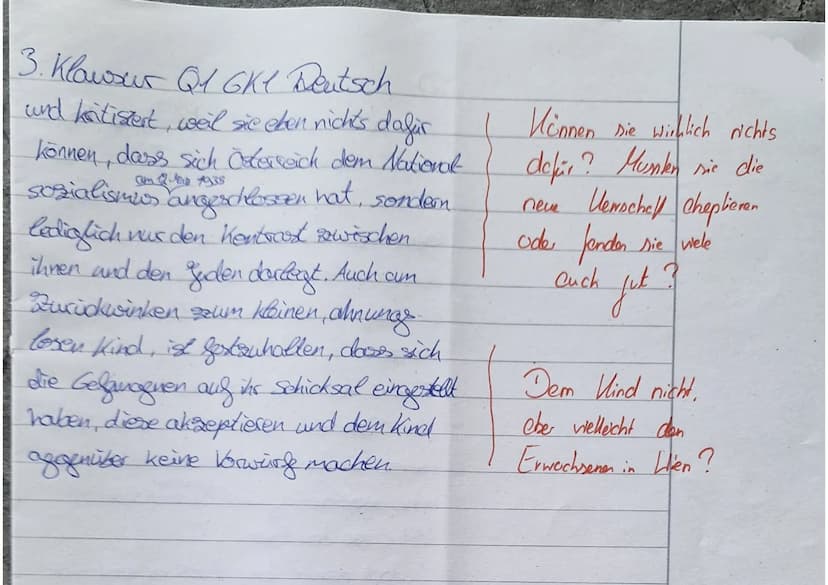 3. Klausur Q1 GK1 Deutsch
und kritisiert, weil sie eben nichts dafür
können, dass sich Österreich dem National
am
sozialismus angeschlossen hat, sondern
lediglich nur den Kontrast zwischen
ihnen und den Juden darlegt. Auch am
Zurückwinken zum kleinen, ahnungs-
losen Kind, ist festzuhalten, dass sich
die Gefangnen auf ihr Schicksal eingestellt
haben, diese akzeptieren und dem Kind
gegenüber keine Vorwürfe machen.
Können sie wirklich nichts
dafür? Mussten sie die
neue Herrschaft akzeptieren
oder fanden sie viele
auch gut?
Dem Kind nicht,
aber vielleicht den
Erwachsenen in Wien?